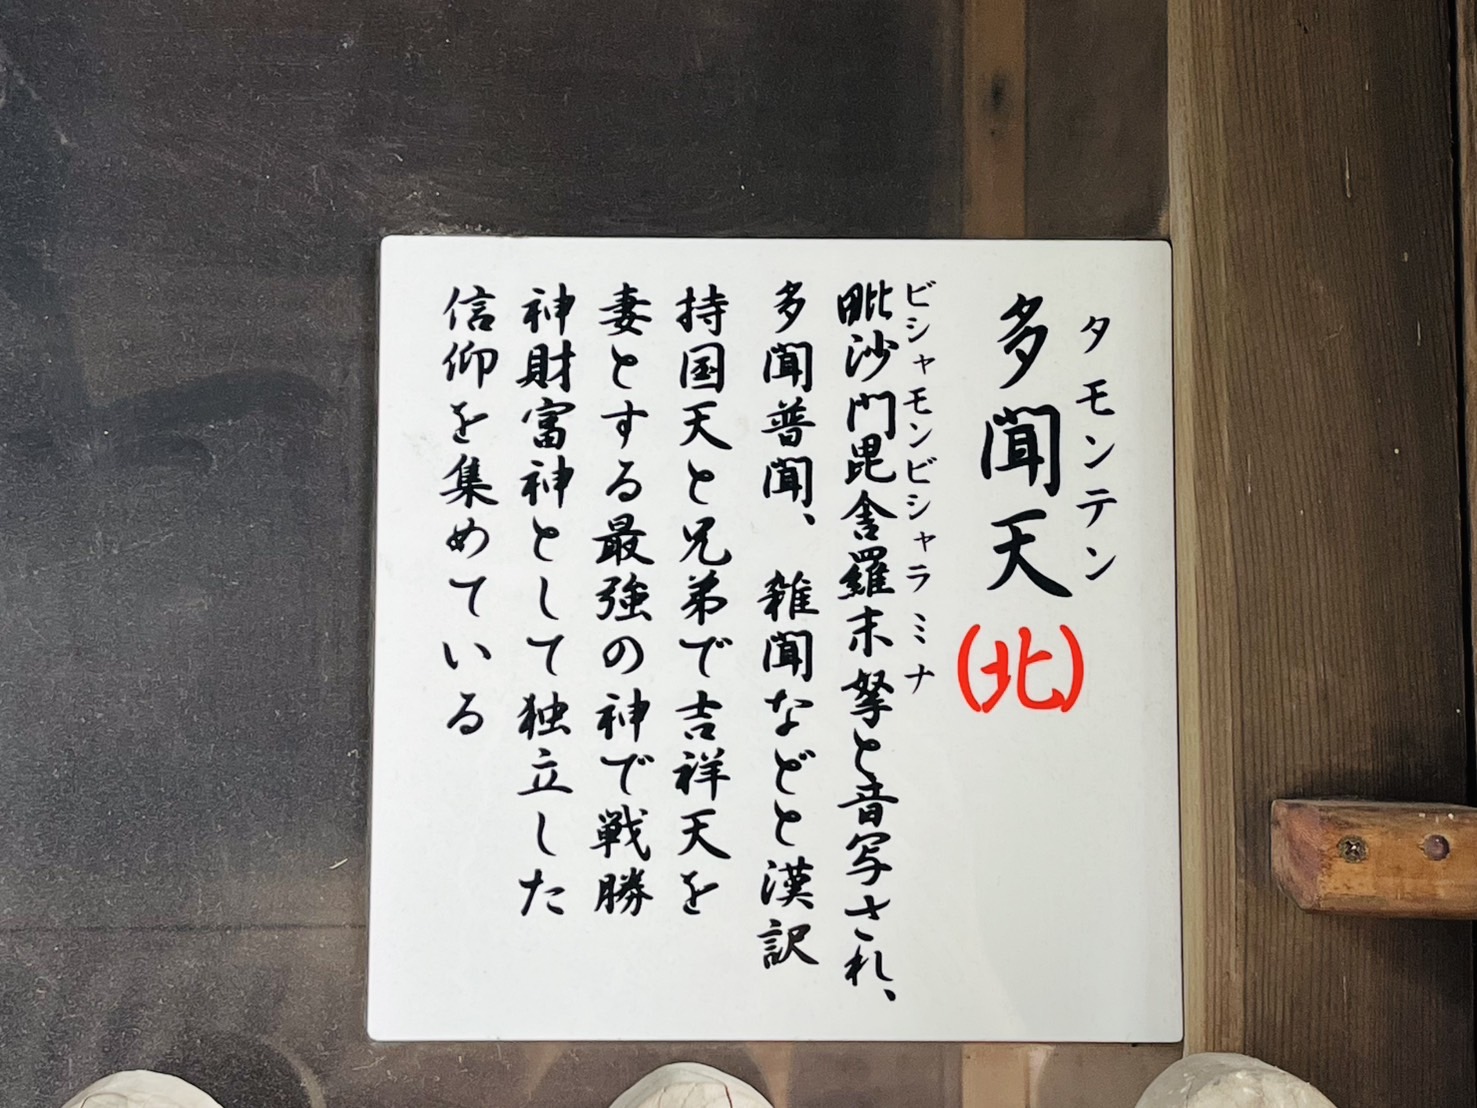 タモンテン
多聞天(北)
ビシャモンビシャラミナ
毗沙門毘舎羅末拏と音写され、
多聞普聞、雑聞などと漢訳
持国天と兄弟で吉祥天を
妻とする最強の神で戦勝
神財富神として独立した
信仰を集めている